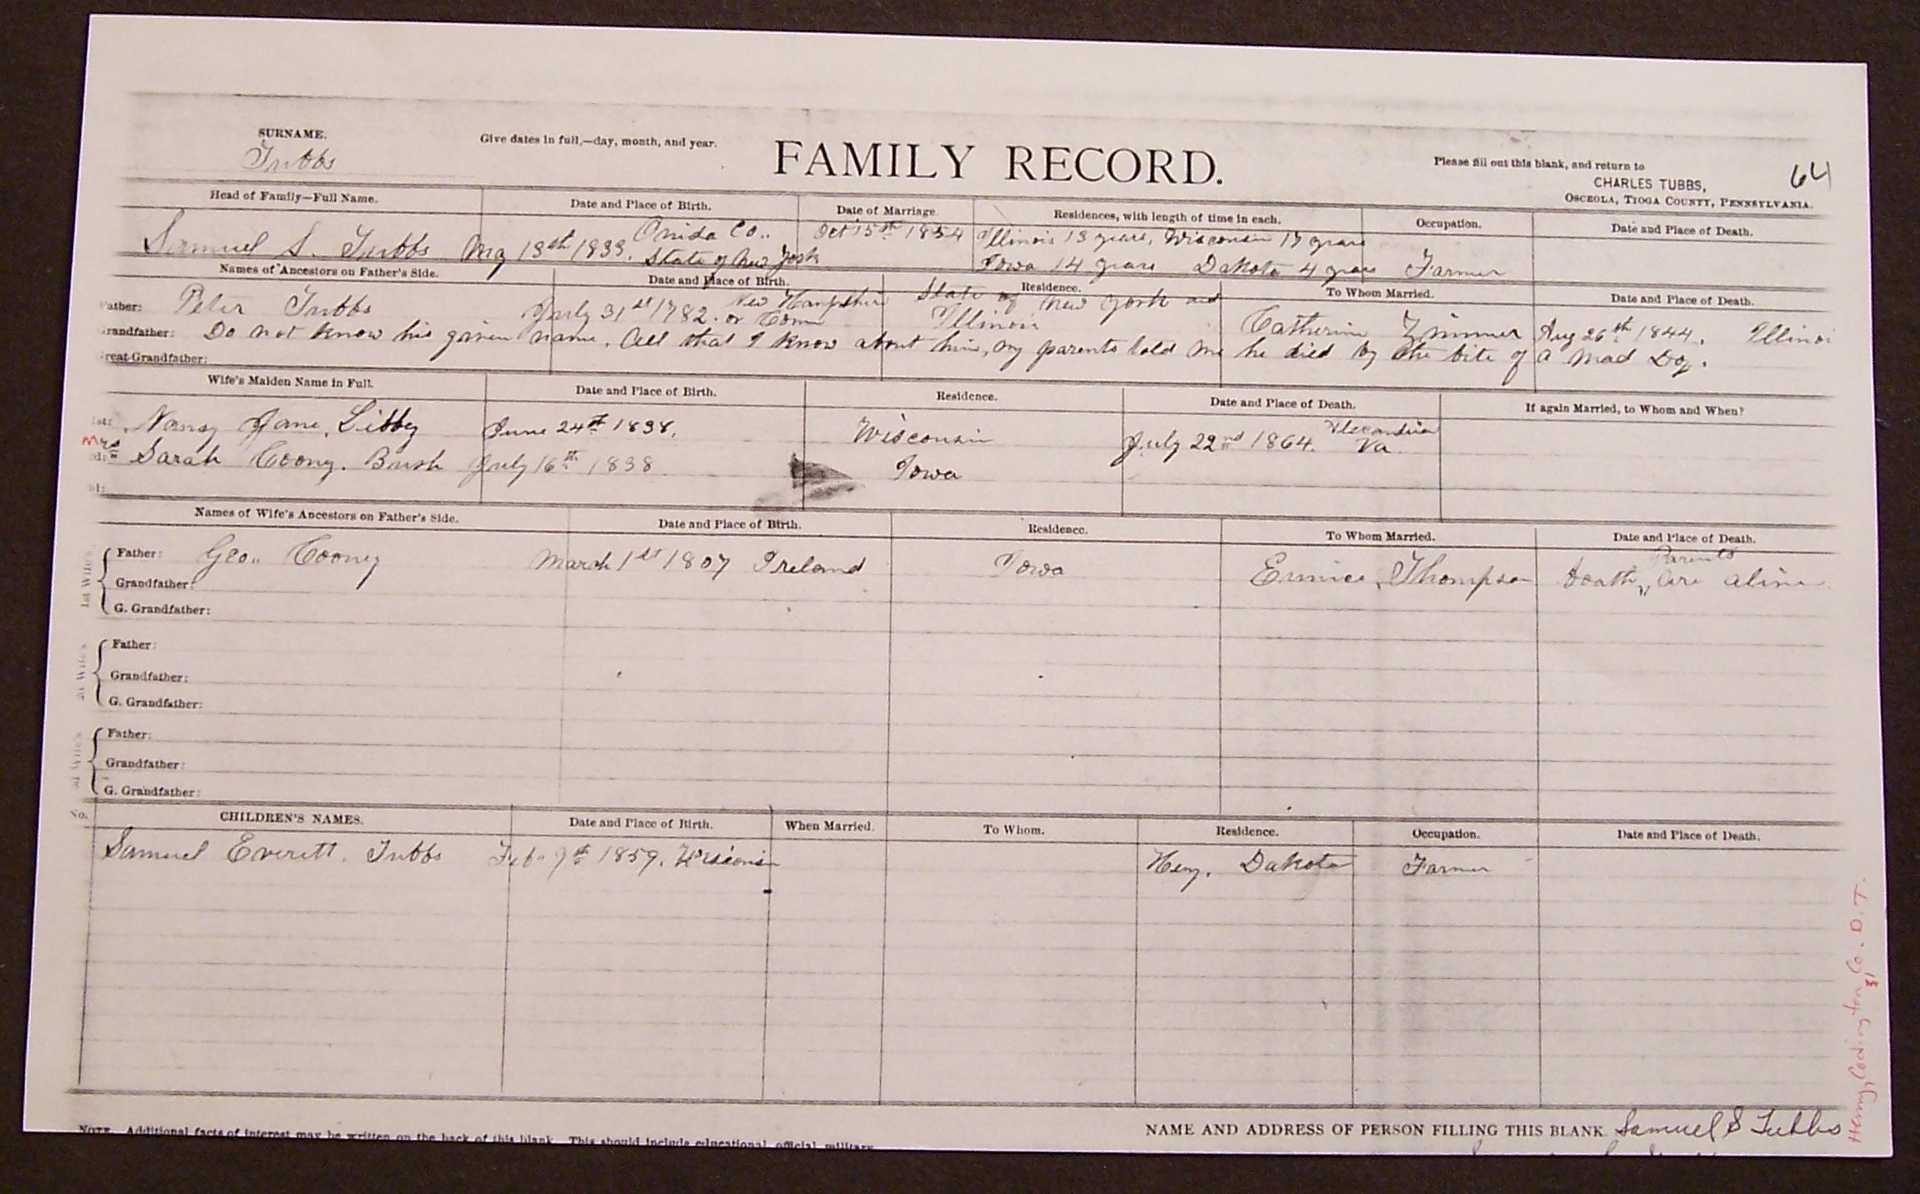 SURNAME.
Tubbs
Give dates in full,—day, month, and year.
FAMILY RECORD.
Please fill out this blank, and return to
CHARLES TUBBS,
OSCEOLA, TIOGA COUNTY, PENNSYLVANIA.
64
Head of Family—Full Name. Date and Place of Birth. Date of Marriage. Residences, with length of time in each. Occupation. Date and Place of Death.
Onida Co.. Oct 15th 1854 Illinois 13 years, Wisconsin 17 years
Samuel S. Tubbs 13th 1833. State of New York Iowa 14 years Dakota 4 years Farmer
Names of Ancestors on Father's Side. Date and Place of Birth. Residence. To Whom Married. Date and Place of Death.
New Hampshire State of New York and
Father: Peter Tubbs July 31st 1782. or Conn Illinois Catherine Zimmer Aug 26th 1844. Illinoi
Grandfather: Do not know his given name. All that I know about him, my parents told me he died by the bite of a mad Dog.
Great-Grandfather:
Wife's Maiden Name in Full. Date and Place of Birth. Residence. Date and Place of Death. If again Married, to Whom and When?
1st: Nancy Jane, Libbey June 24th 1838. Wisconsin July 22nd 1864. Alexandria Va.
Mrs
2d: Sarah Coony. Bush July 16th 1838 Iowa
Names of Wife's Ancestors on Father's Side. Date and Place of Birth. Residence. To Whom Married. Date and Place of Death.
1st Wife's
Father: Geo.. Coony March 1st 1807 Ireland Iowa Eunice, Thompson death, Parents are alive
Grandfather:
G. Grandfather:
2d Wife's
Father:
Grandfather:
G. Grandfather:
3d Wife's
Father:
Grandfather:
G. Grandfather:
No. CHILDREN'S NAMES. Date and Place of Birth. When Married. To Whom. Residence. Occupation. Date and Place of Death.
Samuel Everett. Tubbs Feb. 9th 1859. Wisconsin Heny. Dakota Farmer
Henry, Codington Co. D.T.
NOTE. Additional facts of interest may be written on the back of this blank. This should include educational, official, military
NAME AND ADDRESS OF PERSON FILLING THIS BLANK. Samuel S Tubbs